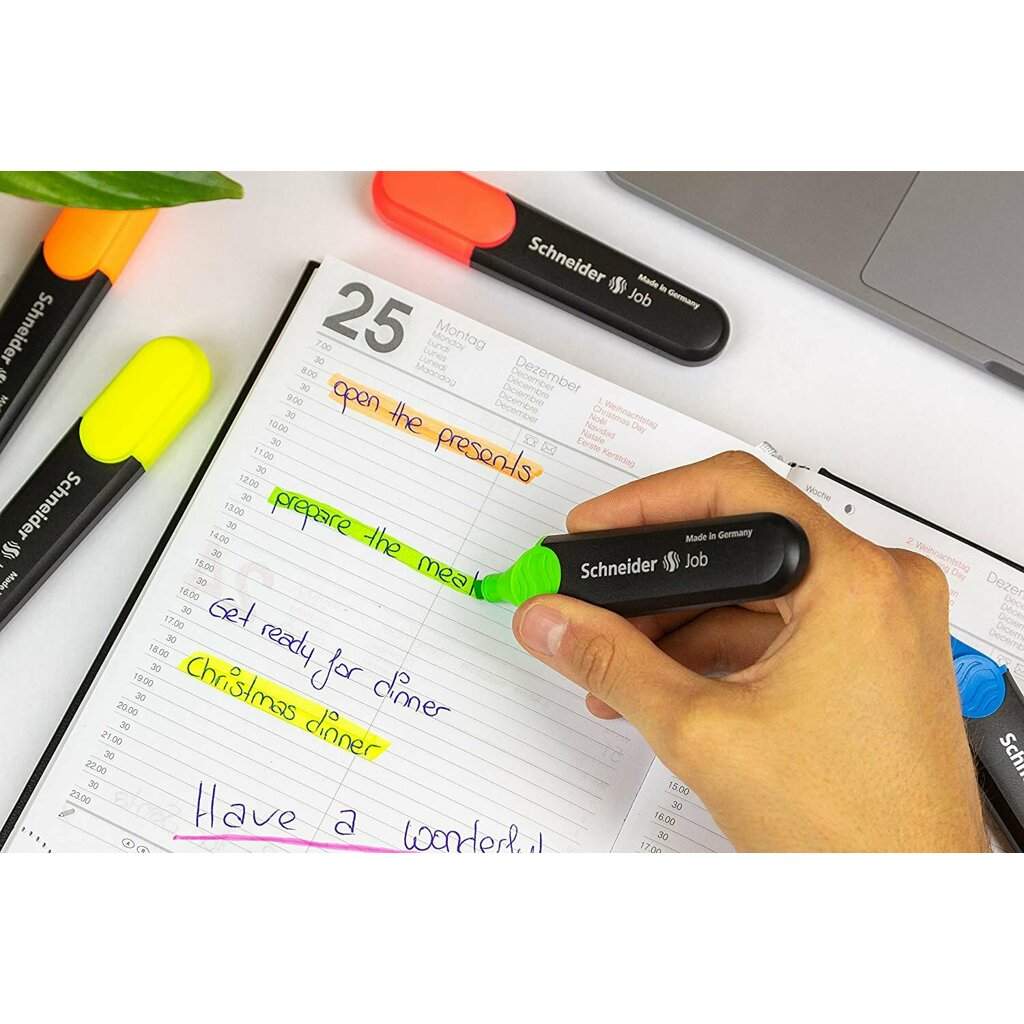 Schneider Job
Made in Germany
Schneider
Schneider
25
Montag
Monday
Lundi
Lunes
Lunedì
Maandag
Dezember
December
Décembre
Diciembre
Dicembre
December
1. Weihnachtstag
Christmas Day
Noël
Navidad
Natale
Eerste Kerstdag
7.00
30
8.00
30
9.00
30
10.00
30
11.00
30
12.00
30
13.00
30
14.00
30
15.00
30
16.00
30
17.00
30
18.00
30
19.00
30
20.00
30
21.00
30
22.00
30
23.00
open the presents
prepare the meal
Get ready for dinner
Christmas dinner
Have a wonderful
Made in Germany
Schneider Job
Woche
2. Weihnachtstag
15.00
30
16.00
30
17.00